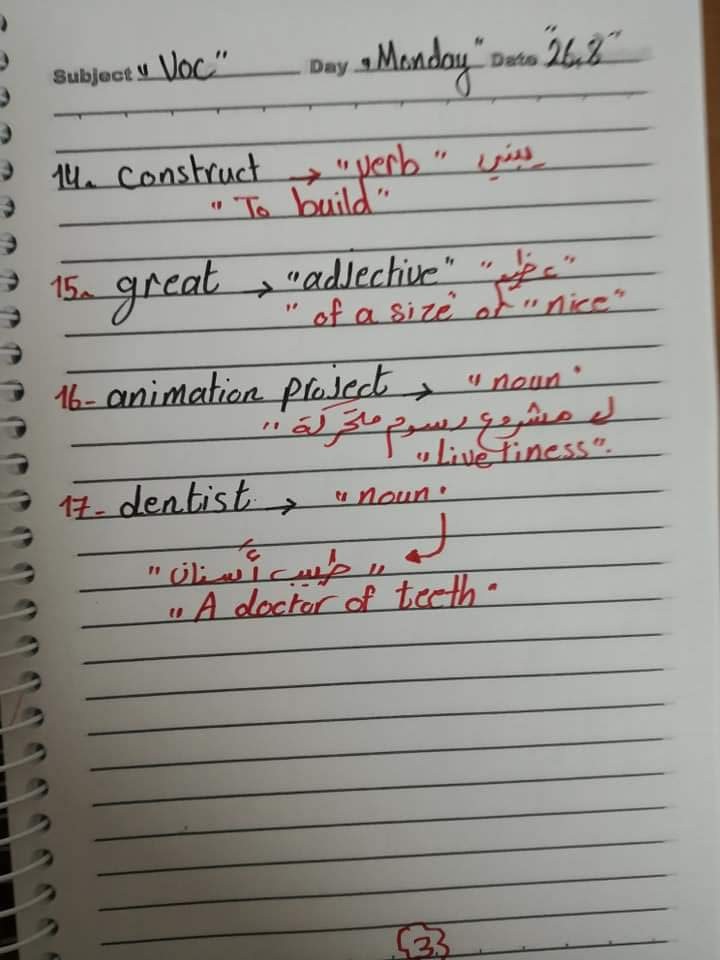 Subject " Voc" Day "Monday" Date "26.8"
14. construct → "verb" يبني
"To build"
15- great → "adjective" "عظيم"
"of a size or "nice"
16- animation project → "noun"
ل مشروع رسوم متحركة "
"Liveliness".
17- dentist → "noun.
" طبيب أسنان "
"A doctor of teeth.
{3}